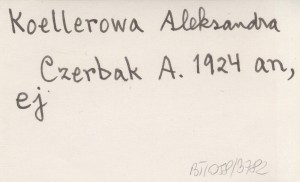 Koellerowa Aleksandra
Czerbak A. 1924 an,
ej